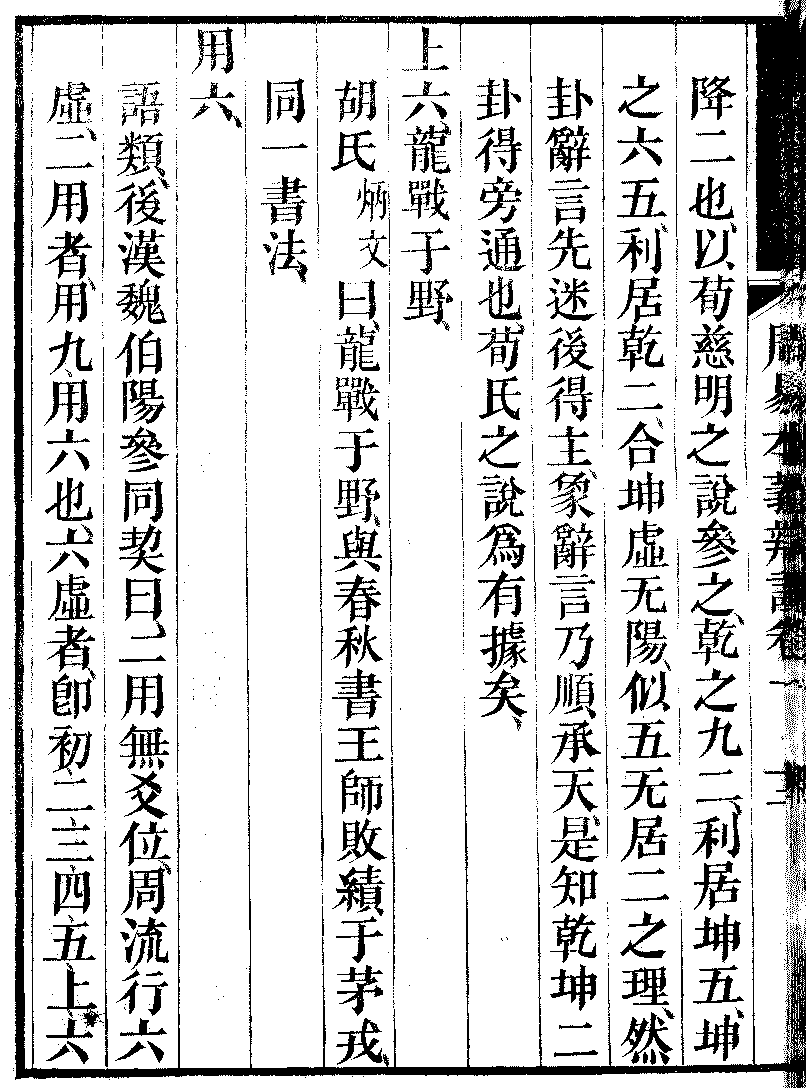 降二也、以荀慈明之說參之、乾之九二、利居坤五、坤
之六五、利居乾二、合坤虛无陽、似五无居二之理、然
卦辭言先迷後得主、彖辭言乃順、承天、是知乾坤二
卦得旁通也、荀氏之說爲有據矣、
上六、龍戰于野、
胡氏炳文曰、龍戰于野、與春秋書王師敗績、于茅戎、
同一書法、
用六、
語類、後漢魏伯陽參同契曰、二用無爻位、周流行六
虛、二用者、用九、用六也、六虛者、卽初二三四五上六